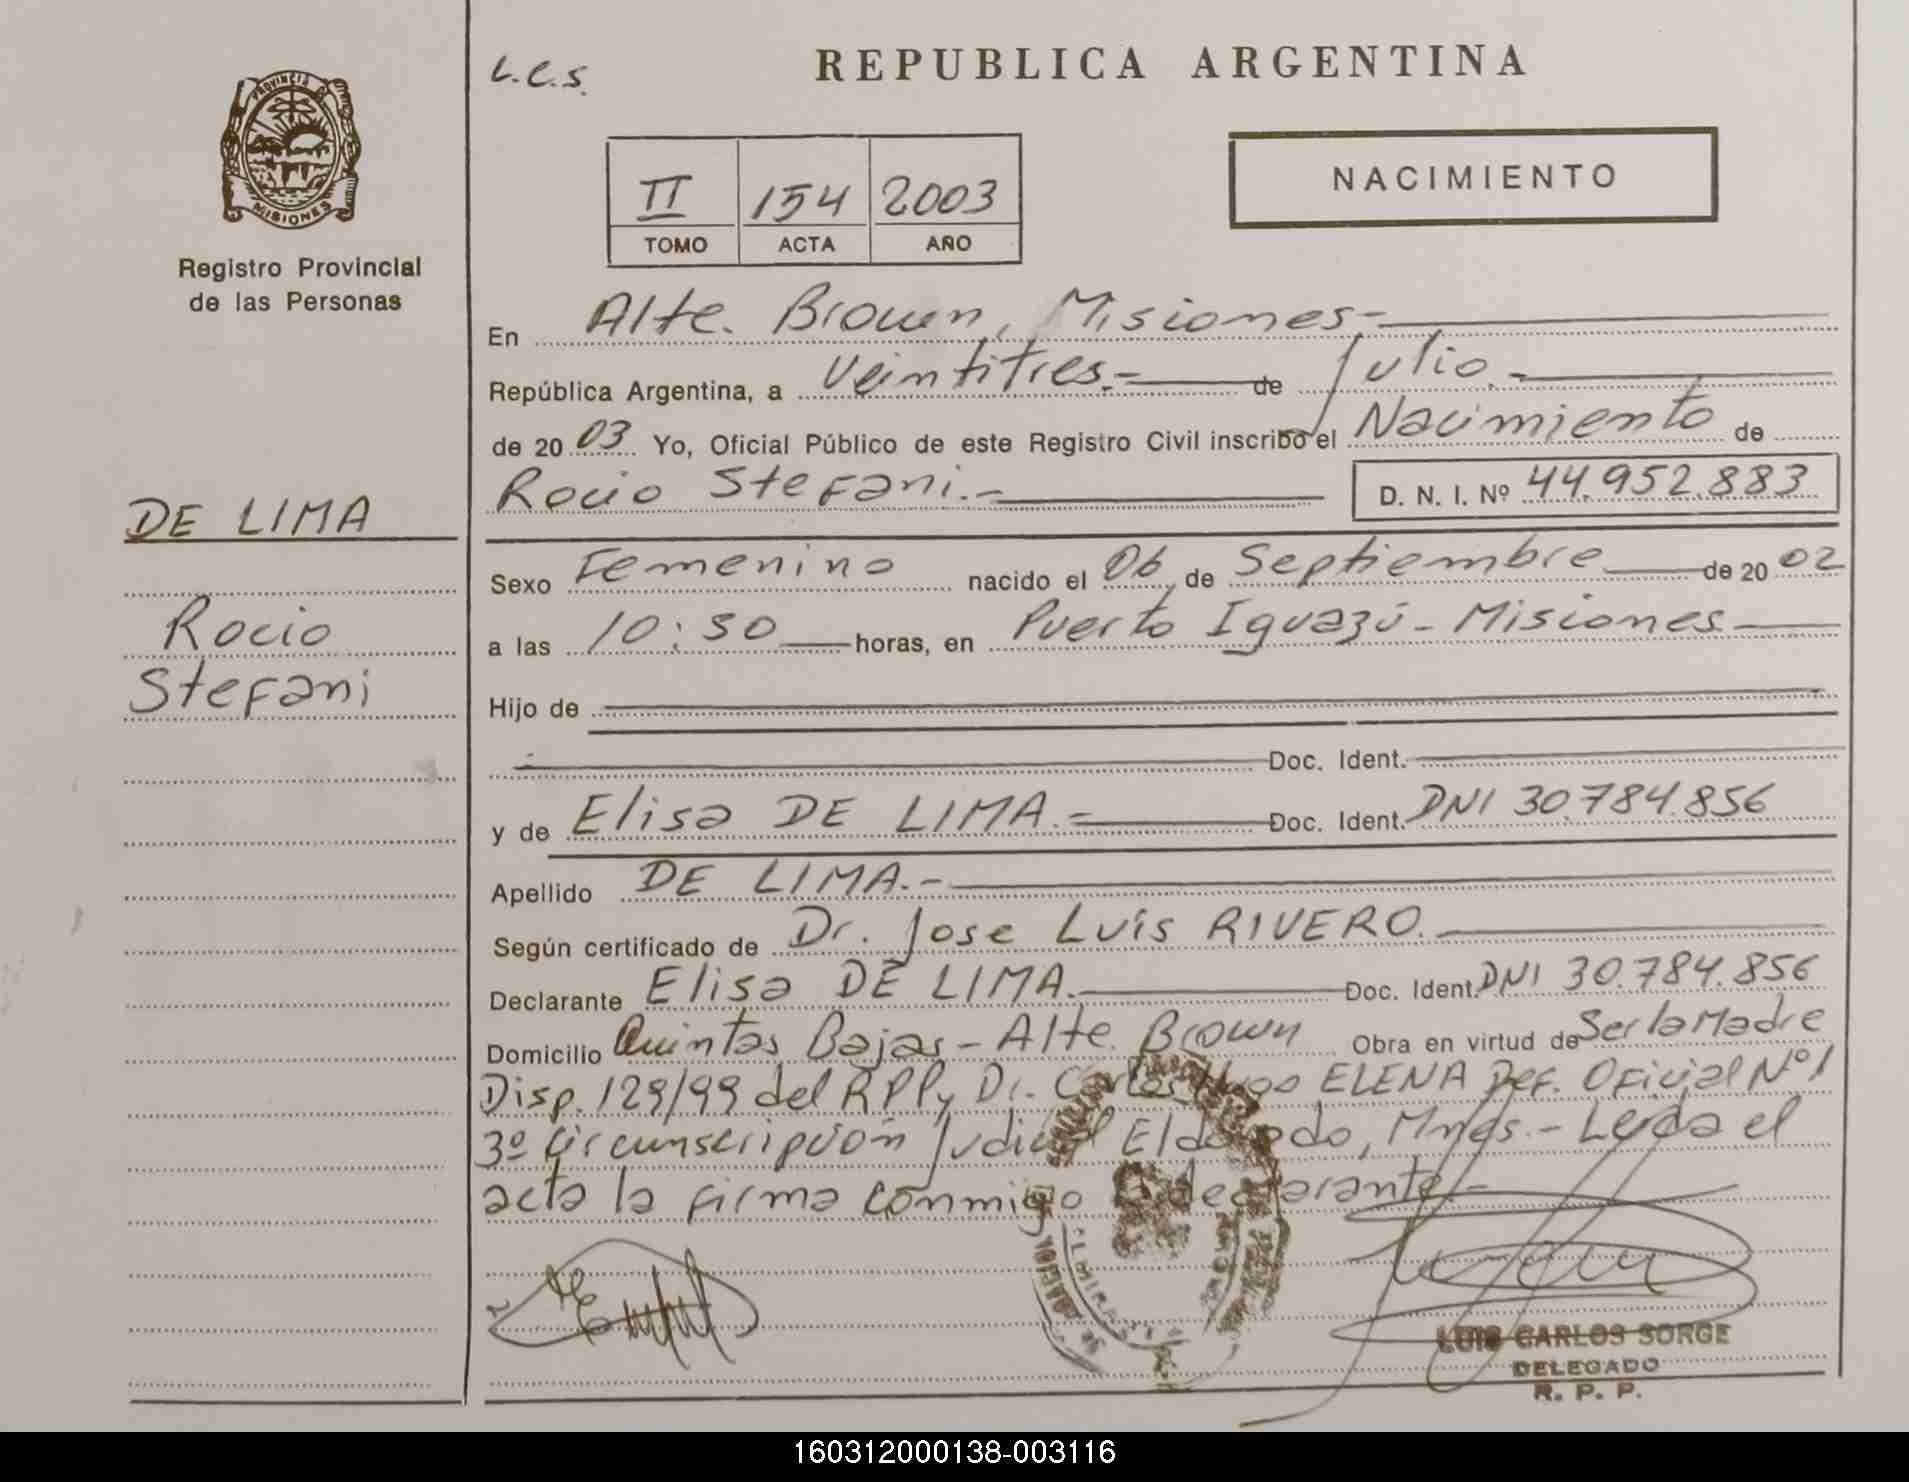 L.C.S.
REPUBLICA ARGENTINA
PROVINCIA DE
MISIONES
Registro Provincial
de las Personas
II 154 2003
TOMO ACTA AÑO
NACIMIENTO
En Alte. Brown, Misiones.-
República Argentina, a Veintitres.- de Julio.-
de 20 03 Yo, Oficial Público de este Registro Civil inscribo el Nacimiento de
Rocio Stefani.- D. N. I. Nº 44.952.883
DE LIMA
Rocio
Stefani
Sexo Femenino nacido el 06 de Septiembre de 20 02
a las 10:30 horas, en Puerto Iguazú - Misiones
Hijo de
Doc. Ident.
y de Elisa DE LIMA.- Doc. Ident. DNI 30.784.856
Apellido DE LIMA.-
Según certificado de Dr. Jose Luis RIVERO.
Declarante Elisa DE LIMA. Doc. Ident. DNI 30.784.856
Domicilio Quintas Bajas - Alte. Brown Obra en virtud de Ser la Madre
Disp. 129/99 del RPP y Dr. Carlos Hugo ELENA Def. Oficial Nº 1
3º Circunscripción Judicial Eldorado, Mnes.- Leida el
acta la firma conmigo la declarante.-
LUIS CARLOS SORGE
DELEGADO
R. P. P.
160312000138-003116